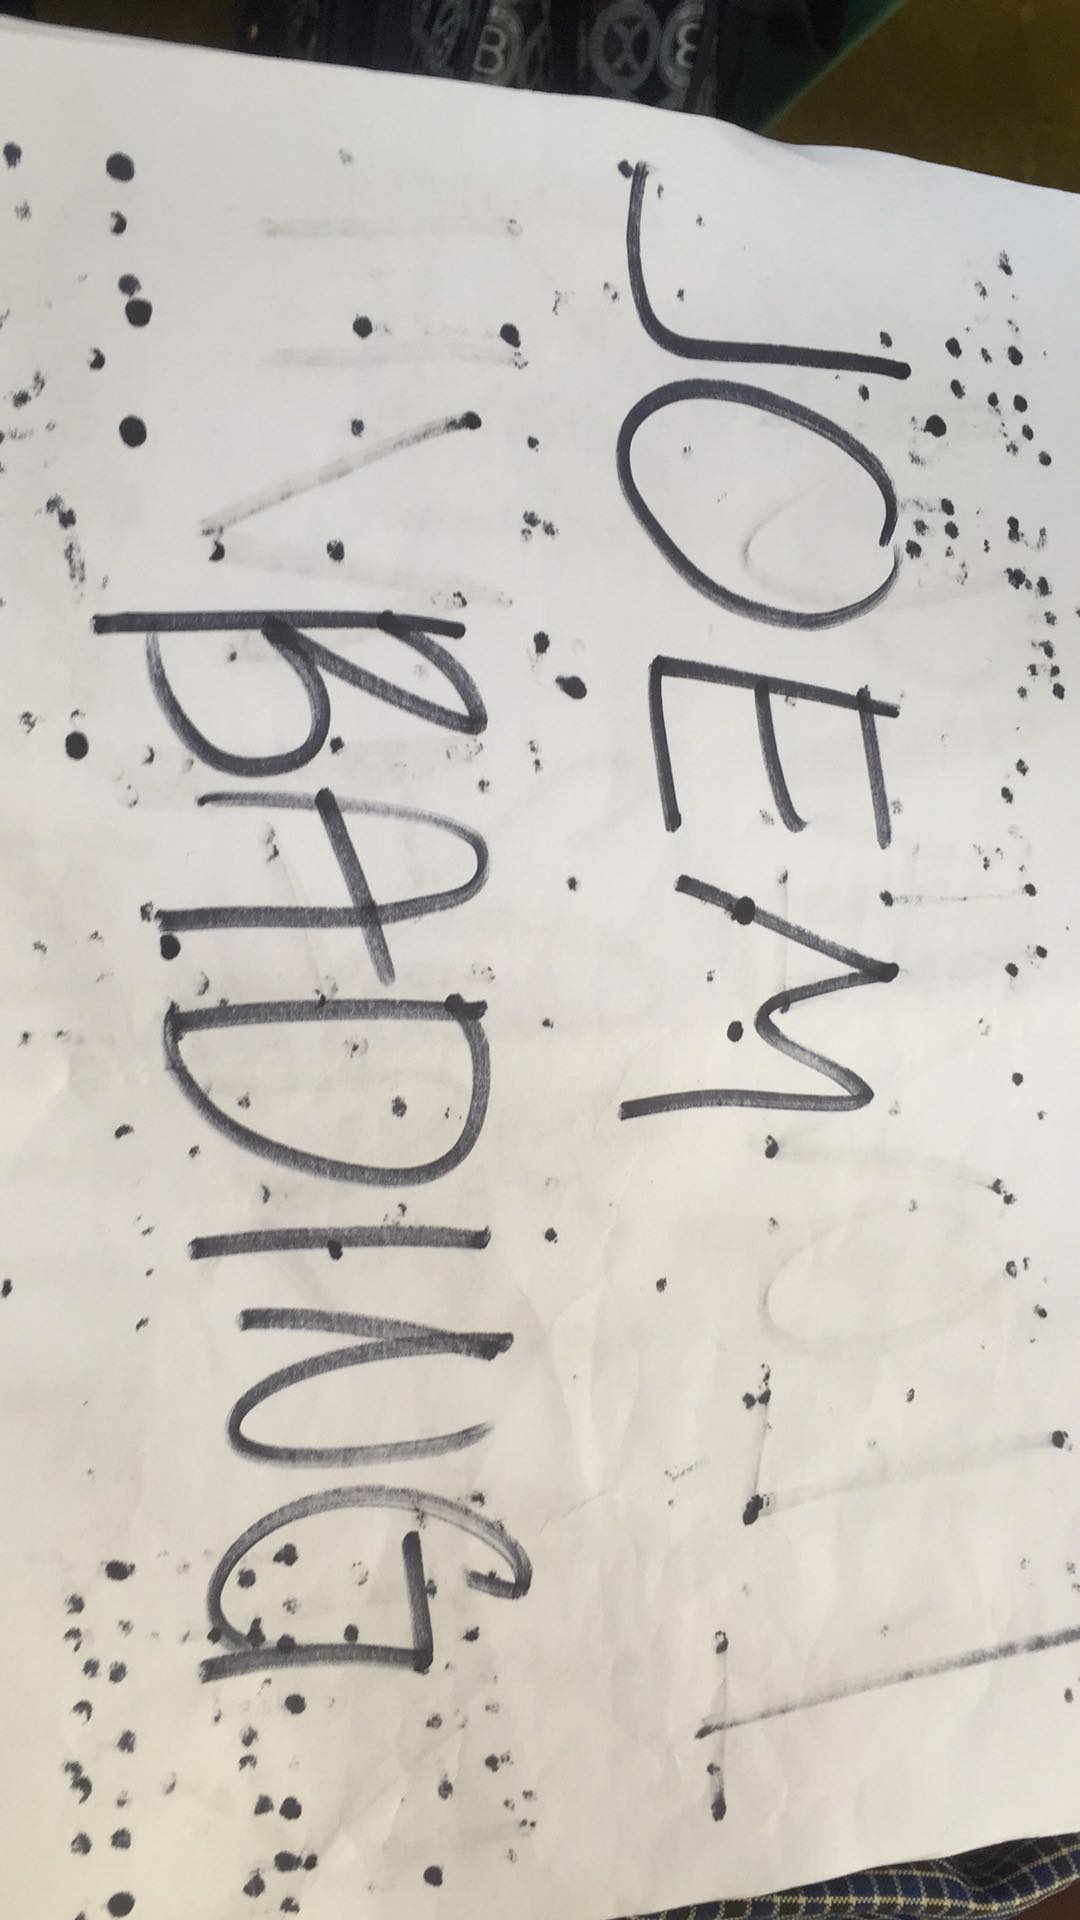 JOEM
BADING